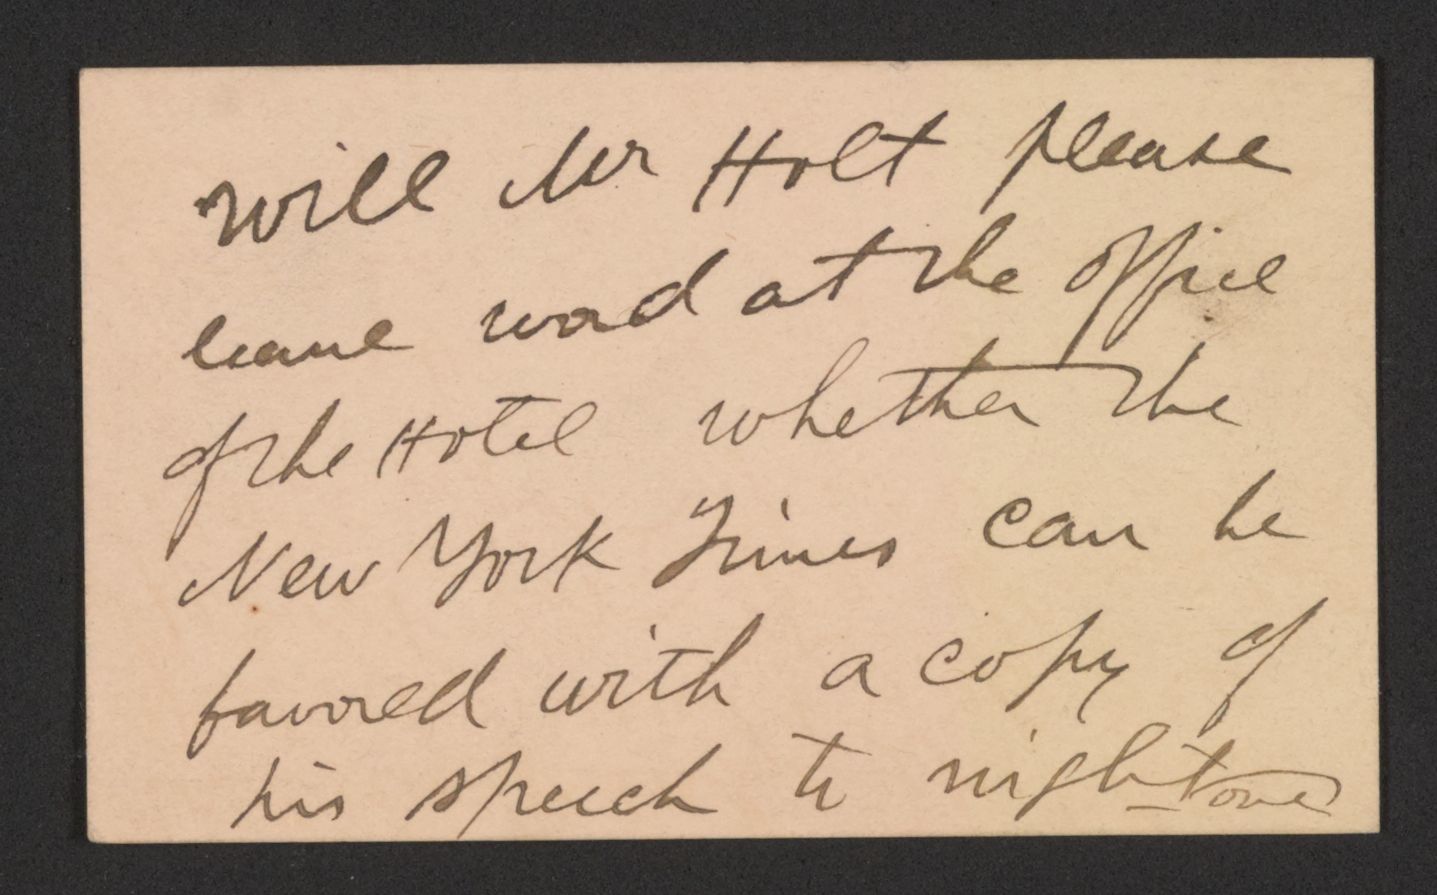 Will Mr Holt please
leave word at the office
of the Hotel whether the
New York Times can be
favored with a copy of
his speech to night
over